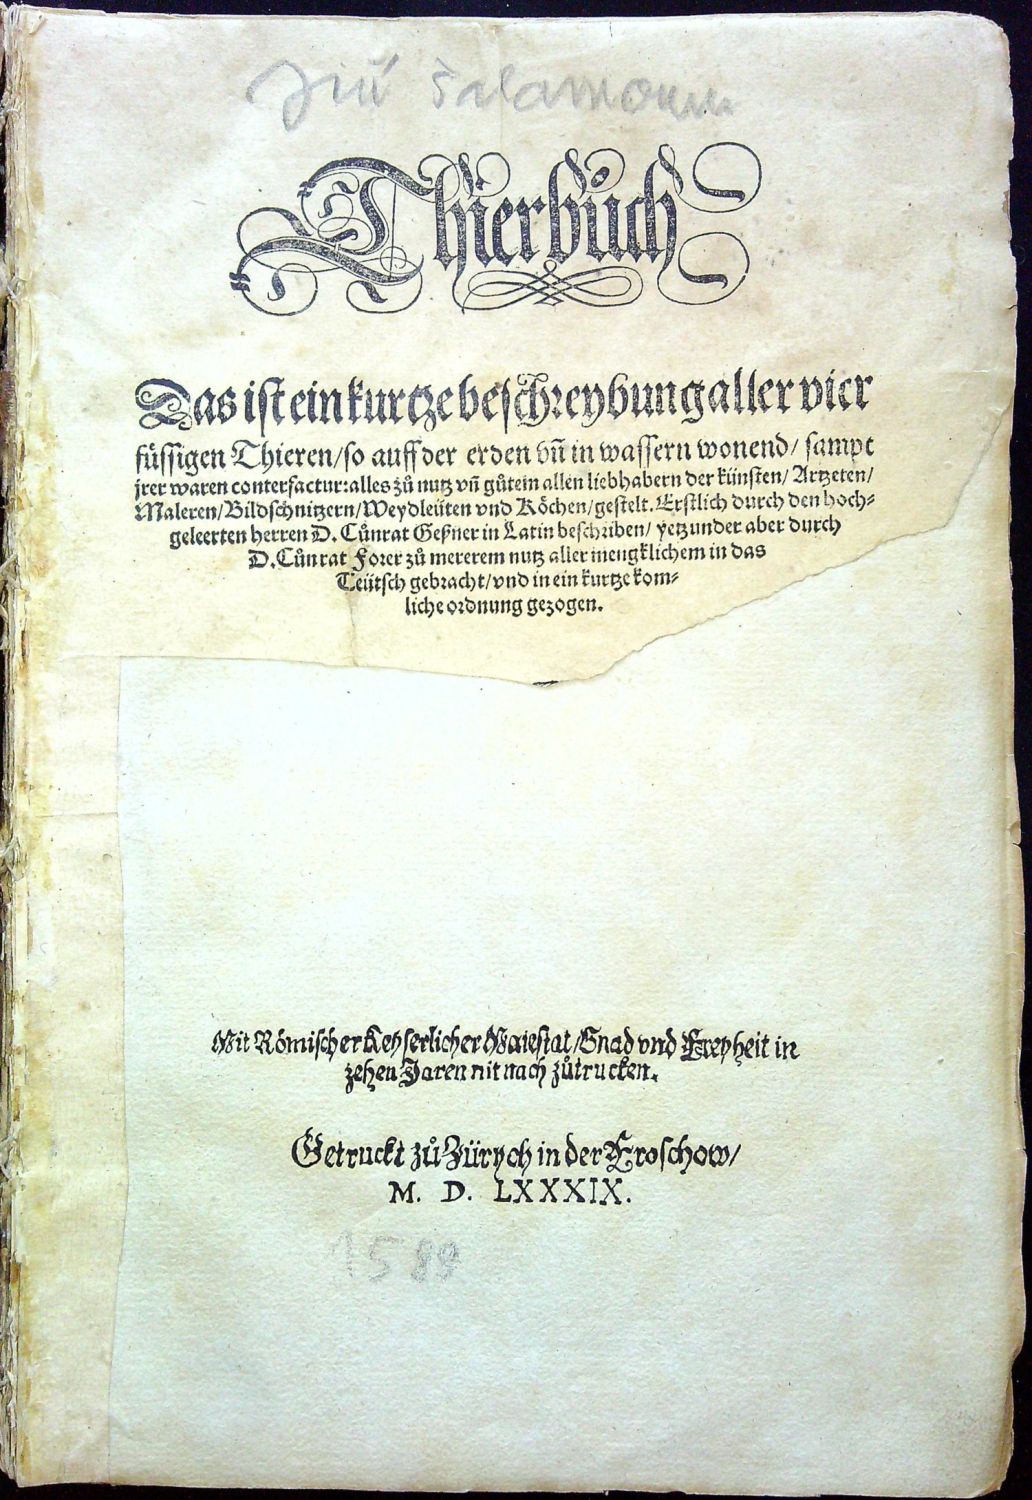 Jiří Šalamoun
Thierbůch
Das ist ein kurtze beschreybung aller vier
füssigen Thieren/so auff der erden vñ in wassern wonend/ sampt
jrer waren conterfactur: alles zů nutz vñ gůtem allen liebhabern der künsten/ Artzeten/
Maleren/Bildschnitzern/Weydleüten vnd Köchen/gestelt. Erstlich durch den hoch-
geleerten herren D. Cůnrat Geßner in Latin beschriben/ yetzunder aber durch
D. Cůnrat Forer zů mererem nutz aller mengklichem in das
Teütsch gebracht/vnd in ein kurtze kom-
liche ordnung gezogen.
Mit Römischer Keyserlicher Maiestat/Gnad vnd Freyheit in
zehen Jaren nit nach zůtrucken.
Getruckt zů Zürych in der Froschow/
M. D. LXXXIX.
1589